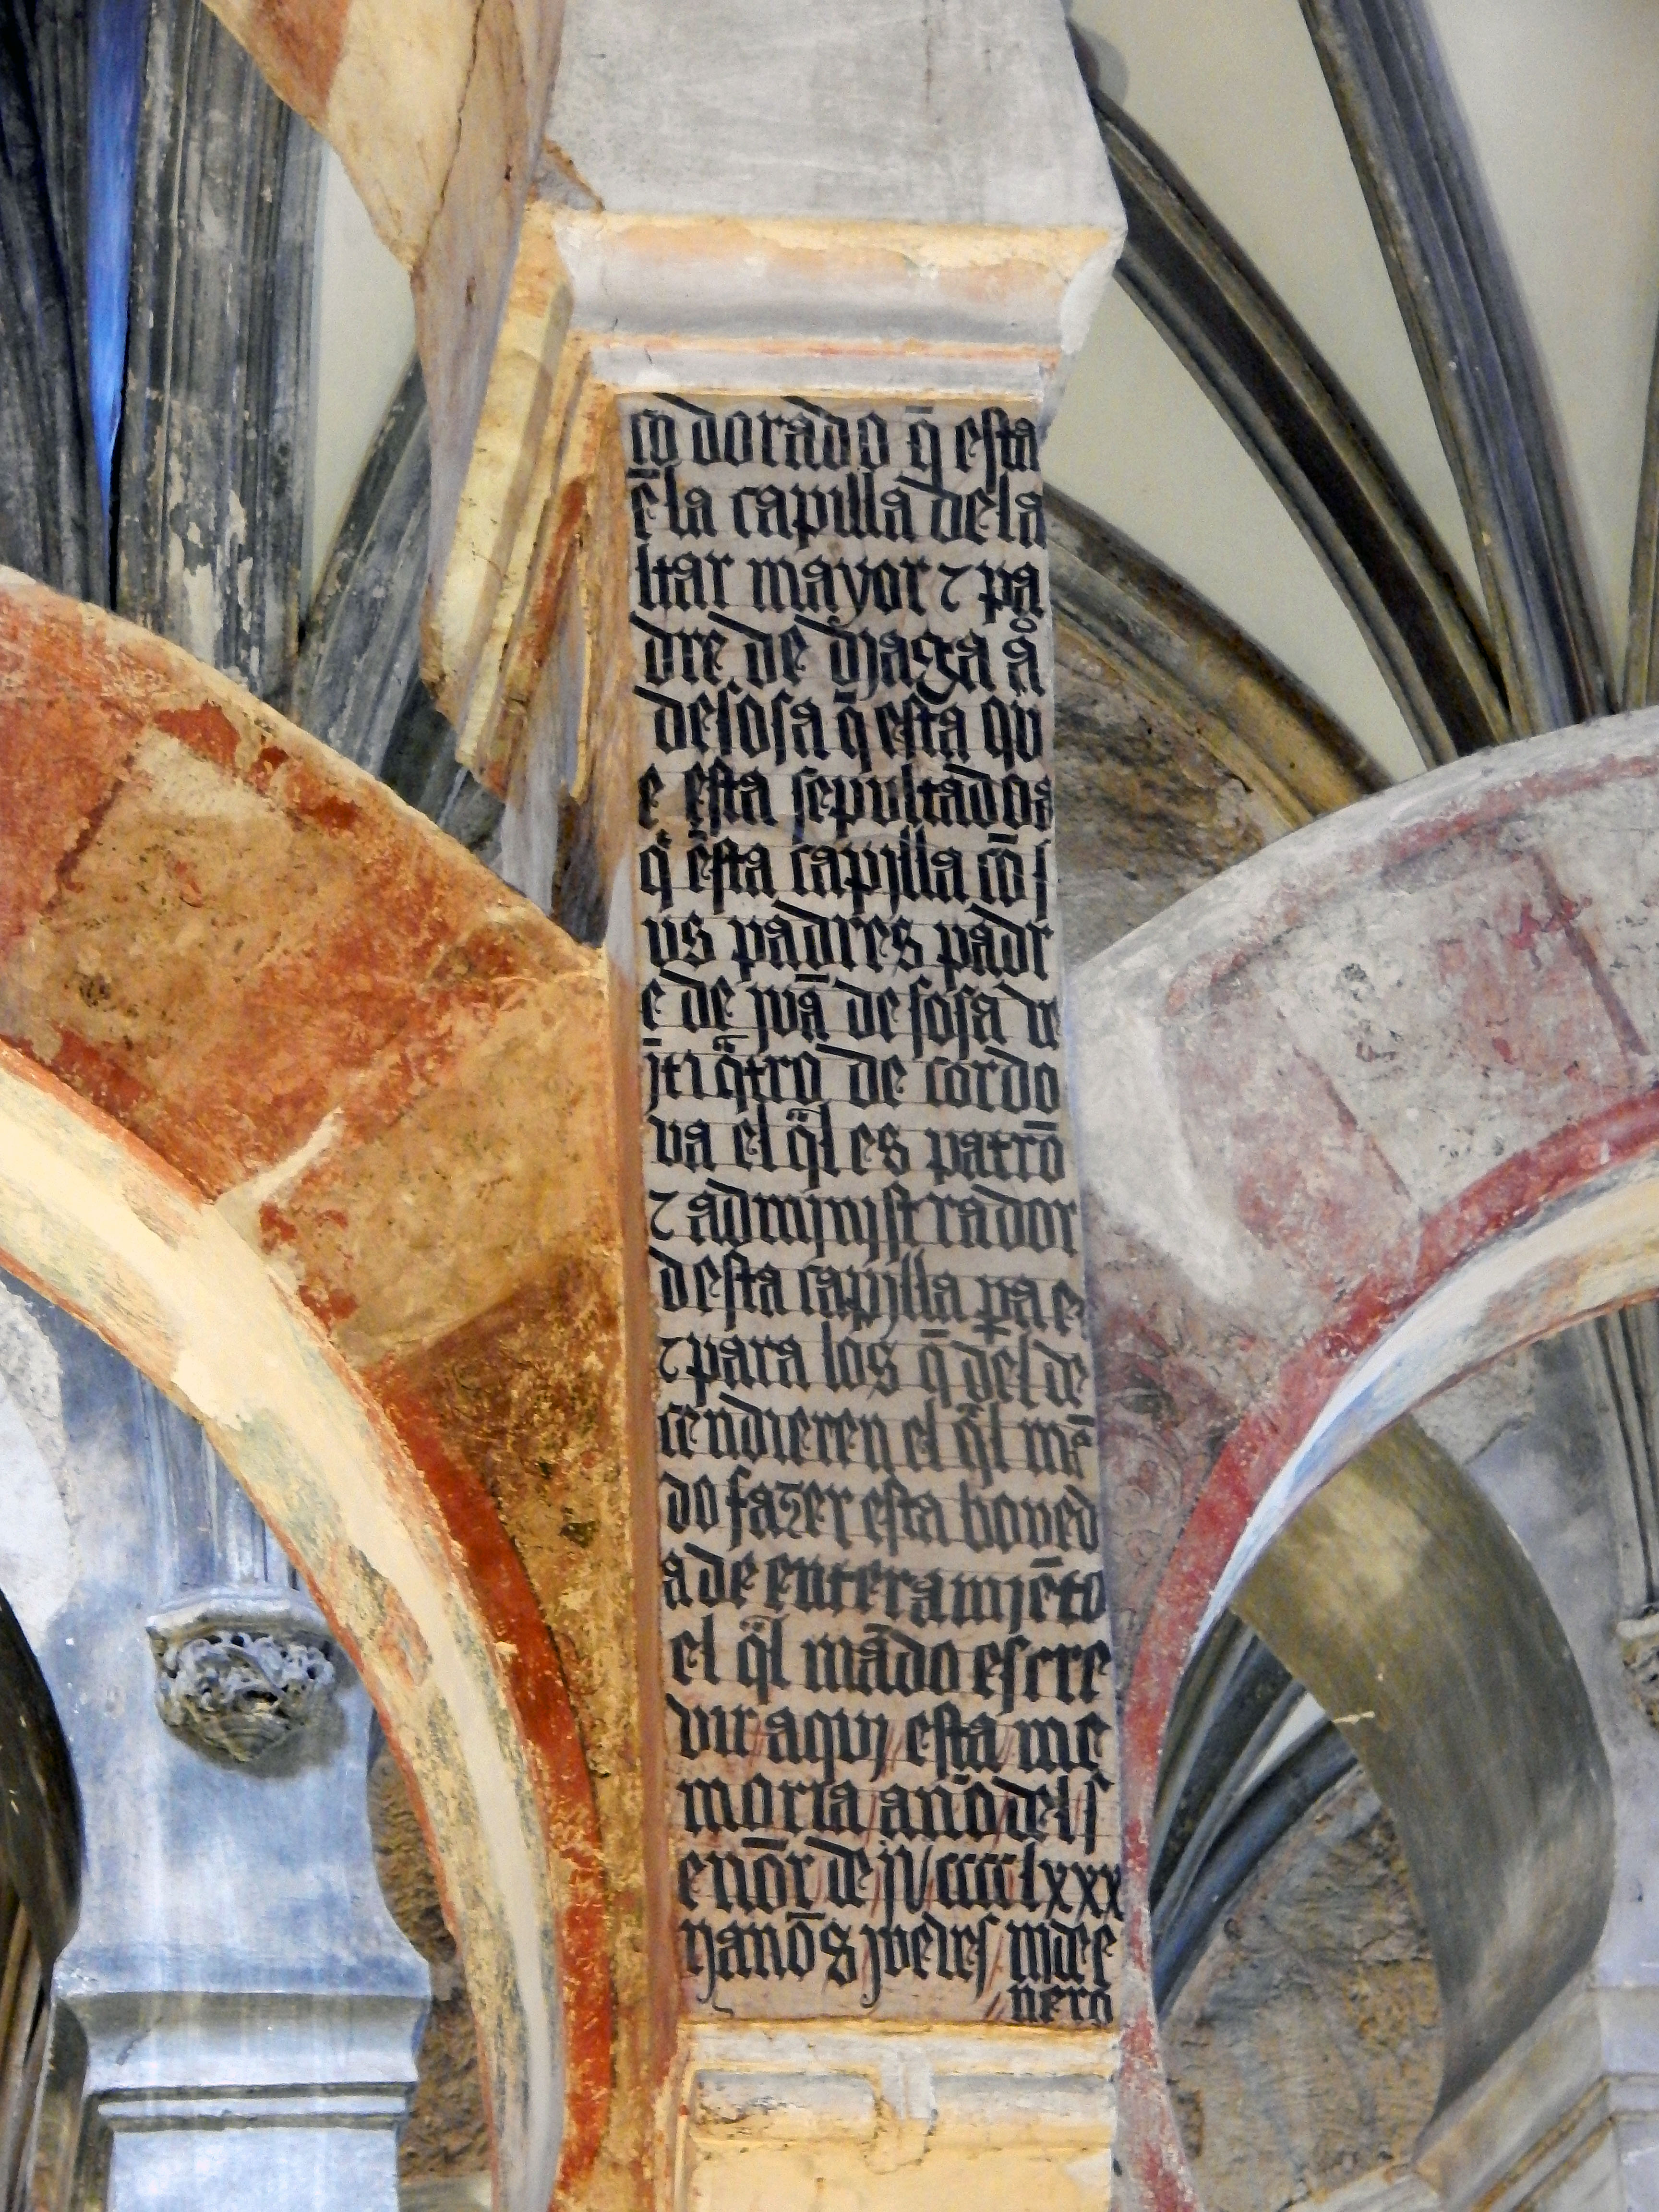 co dorado q̄ esta
ē la capilla de la
ltar mayor ⁊ pa
dre de djaga å
de sosa q̄ esta qu
e esta sepultados
q̊ esta capilla cō s
us padres padr
e de juā de sosa ve
jti q̄tro de cordo
va el q̄l es patrō
⁊ administrador
desta capilla p̱a el
⁊ para los q̄ del de
cendieren el q̄l mā
do fazer esta boved
a de enterramjēto
el q̄l mādo escre
vir aqui esta me
moria año del s
enōr de jv ccccLxxx
ɳ anōs jveves
nero